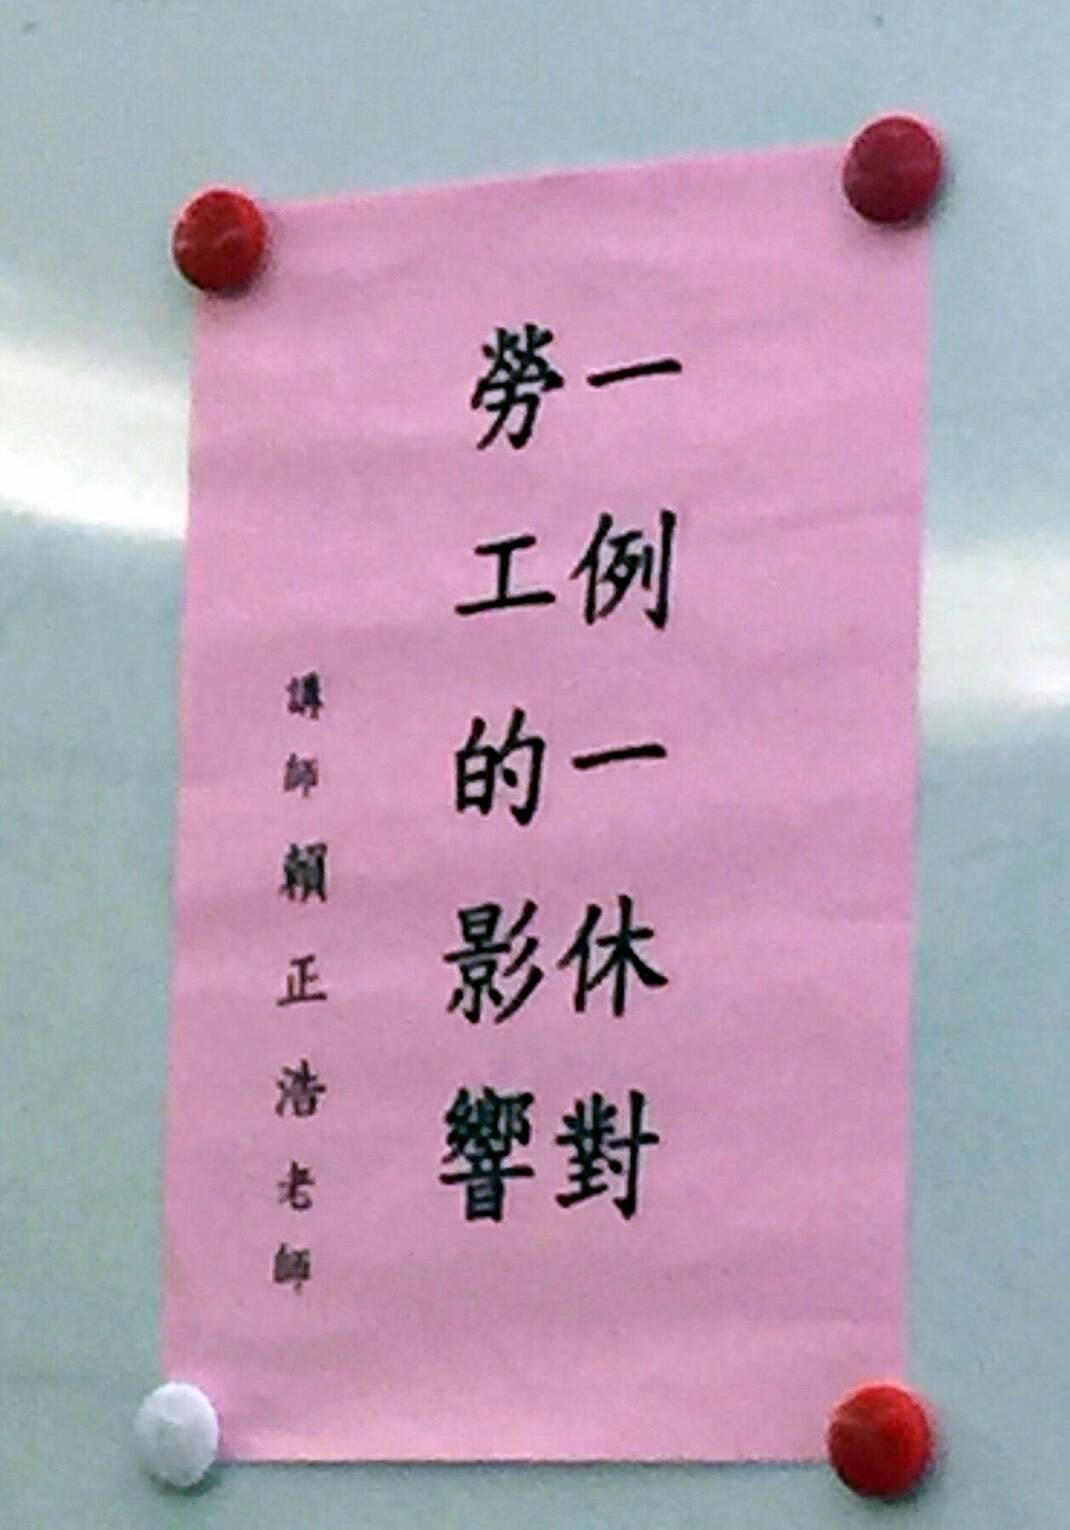 一例一休對
勞工的影響
講師賴正浩老師